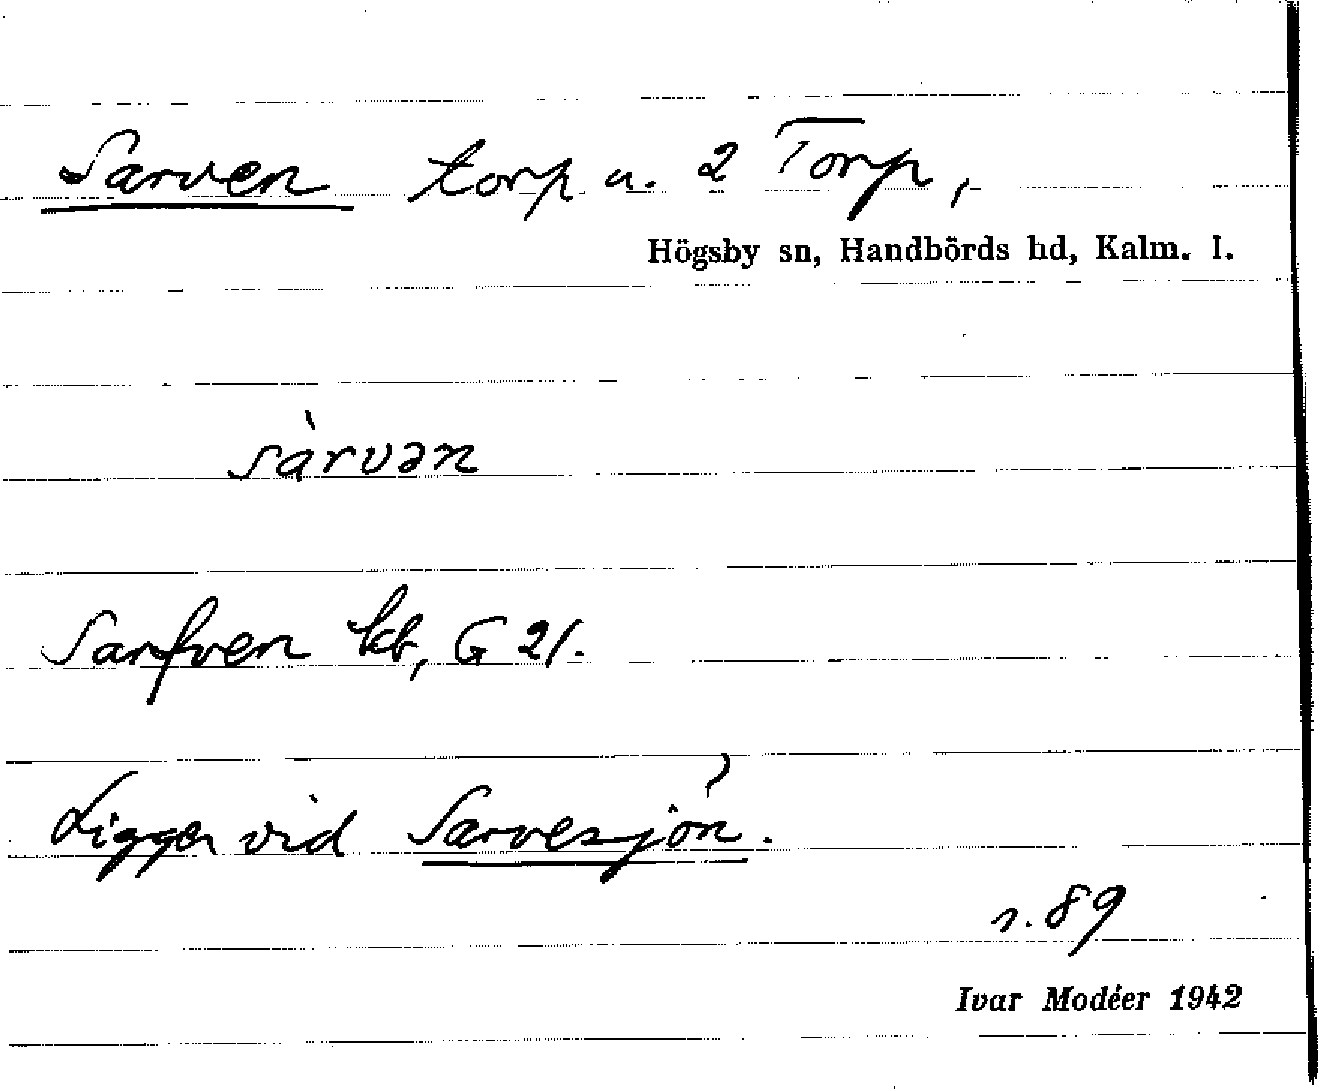 Sarven torp u. 2 Torp,
Högsby sn, Handbörds hd, Kalm. l.
sàrvən
Sarfven kb, G 21.
Ligger vid Sarvesjön.
s. 89
Ivar Modéer 1942